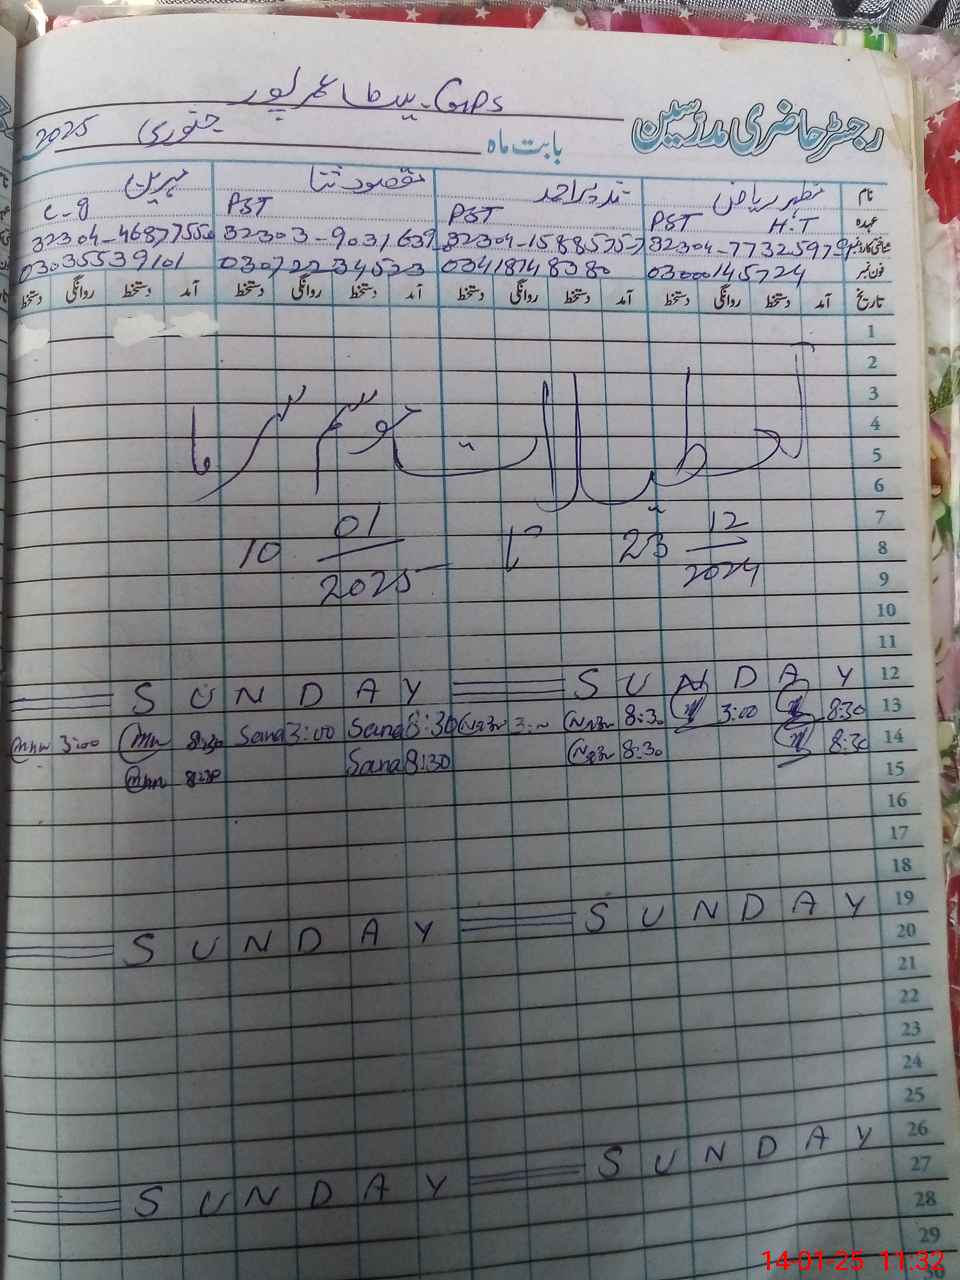 GPS
رجسٹر حاضری مدرسین
بابت ماہ جنوری 2025
نام ظہیر ریاض نذیر احمد مقصود ثنا مہرین
عہدہ PST H.T PST PST
شناختی کارڈ نمبر
فون نمبر 03000145724 03418748380 03072234523 03035539101
تاریخ آمد دستخط روانگی دستخط آمد دستخط روانگی دستخط آمد دستخط روانگی دستخط آمد دستخط روانگی دستخط
1
2
3
4
تعطیلات موسم سرما
5
6
7
8
23 12/2024 تا 10 01/2025
9
10
11
12 SUNDAY SUNDAY
13 8:30 3:00 8:30 3:00 8:30 Sana 3:00 Sana 8:30 3:00
14 8:30 8:30 8:30 Sana 8:30
15
16
17
18
19 SUNDAY SUNDAY
20
21
22
23
24
25
26 SUNDAY SUNDAY
27
28
29
30
14-01-25 11:32